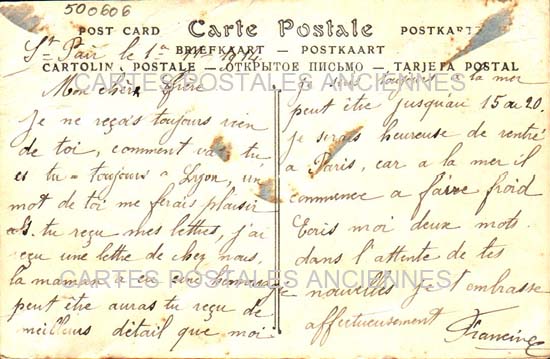 500606
POST CARD Carte Postale POSTKARTE
BRIEFKAART — POSTKAART
CARTOLINA POSTALE — ОТКРЫТОЕ ПИСЬМО — TARJETA POSTAL
CARTES POSTALES ANCIENNES
St Pair le 1914
Mon cher frère
Je ne reçois toujours rien
de toi, comment vas tu
es tu toujours a Lyon, un
mot de toi me ferais plaisir
as tu reçu mes lettres, j'ai
reçu une lettre de chez nous,
la maman a eu
peut être auras tu reçu de
meilleurs détail que moi
Je suis toujours a la mer
peut être jusquau 15 au 20.
je serais heureuse de rentré
a Paris, car a la mer il
commence a faire froid
Ecris moi deux mots
dans l'attente de tes
CARTES POSTALES ANCIENNES
nouvelles je t'embrasse
affectueusement
Francine